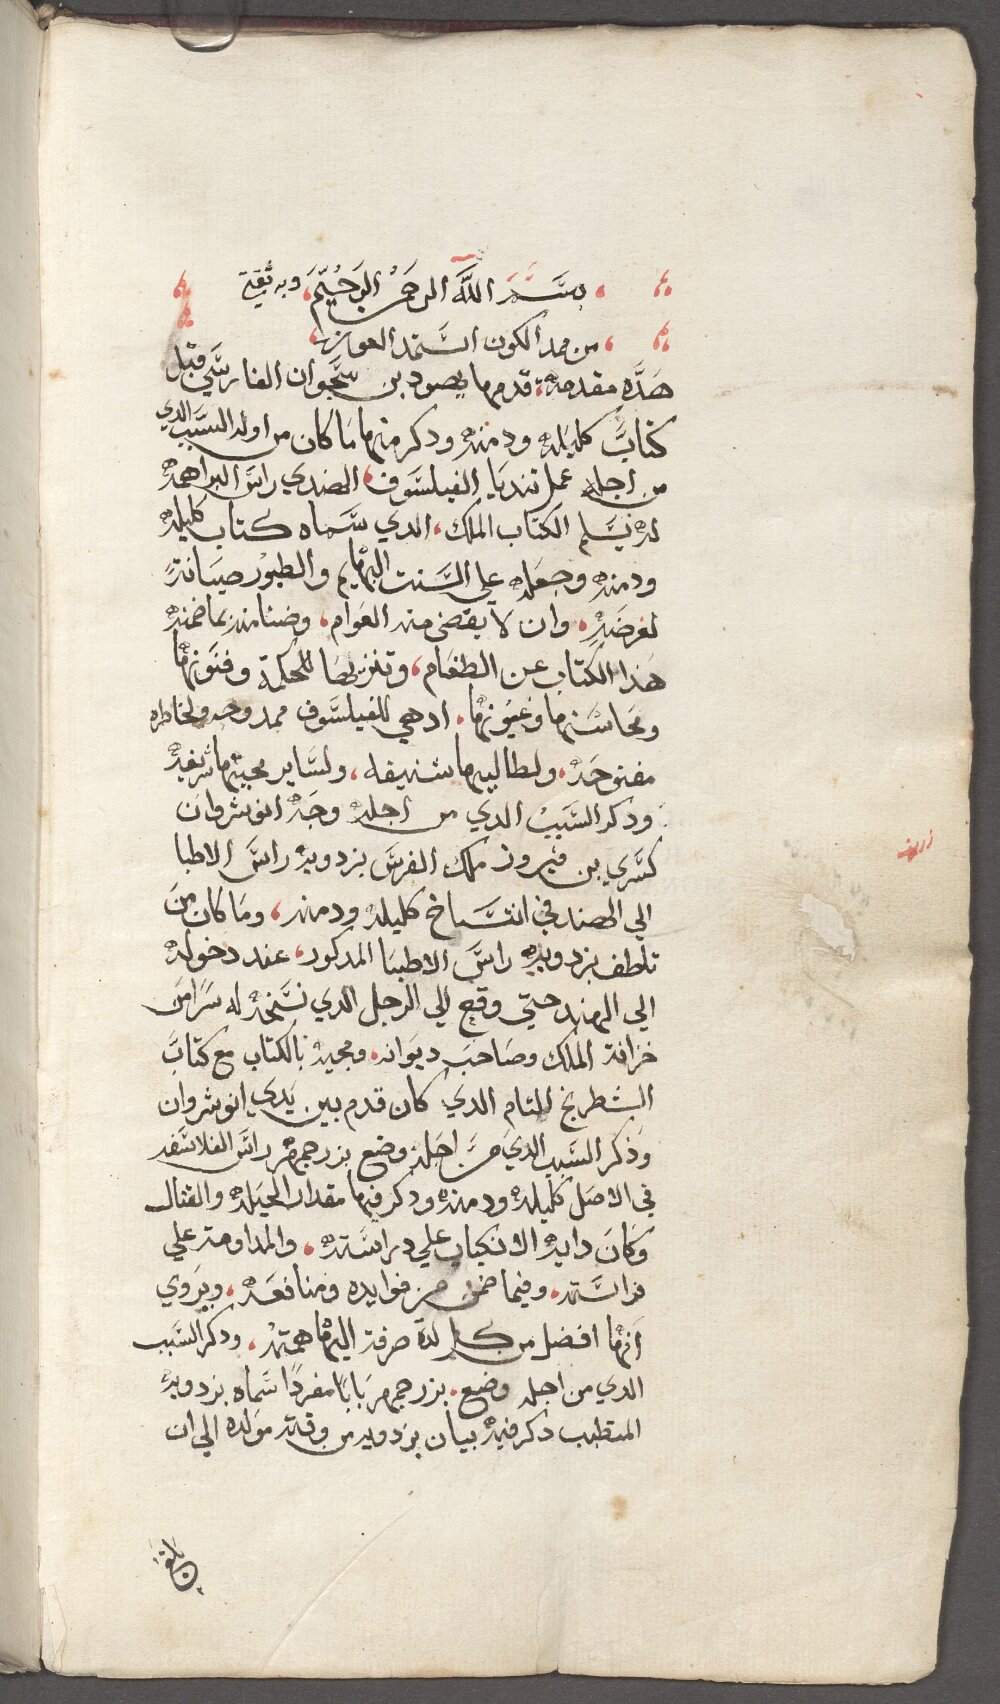 بسم الله الرحمن الرحيم، وبه ثقتي
من ممد الكون استمد العون
هذه مقدمة، قدمها بهبود بن سحوان الفارسي قبل
كتاب كليله ودمنه ودكر منها ما كان من اولد السبب الدي
من اجله عمل بندبا الفيلسوف، الهندي راس البراهمه
لدبشليم الكتاب الملك، الدي سماه كتاب كليله
ودمنه وجعله علي السنت البهايم والطيور صيانة
لغرضه، وان لا يقضي منه العوام، وضنا منه بما ضمنه
هذا الكتاب عن الطغام، وتنزيها للحكمة وفنونها
ومحاسنها وعيونها، ادهي للفيلسوف ممدوحه ولخاطره
مفتوحه، ولطالبيها شنيفه، ولساير محبيها شريفه
ودكر السبب الدي من اجله وجه انوشروان
كسري بن فيروز ملك الفرس بزدويه راس الاطبا
الي الهند في انتساخ كليله ودمنه، وما كان من
تلطف بزدويه راس الاطبا المدكور، عند دخوله
الي الهند حتي وقع الي الرجل الدي نسخه له سرا من
خزانة الملك وصاحب ديوانه، ومجيه بالكتاب مع كتاب
الشطرنج التام الدي كان قدم بين يدي انوشروان
وذكر السبب الدي من اجله وضع بزرجمهر راس الفلاسفه
في الاصل كليله ودمنه ودكر فيها مقدار الحيله والقتال
وكان دايه الانكباب علي دراسته، والمداومة علي
فراسته، وفيما ضمن من فوايده ومنافعه، ويروي
انها افضل من كل لدة صرفة اليها همته، ودكر السبب
الدي من اجله وضع، بزرجمهر بابا مفردا سماه بزدويه
المتطبب ذكر فيه بيان بزدويه من وقت مولده الي ان